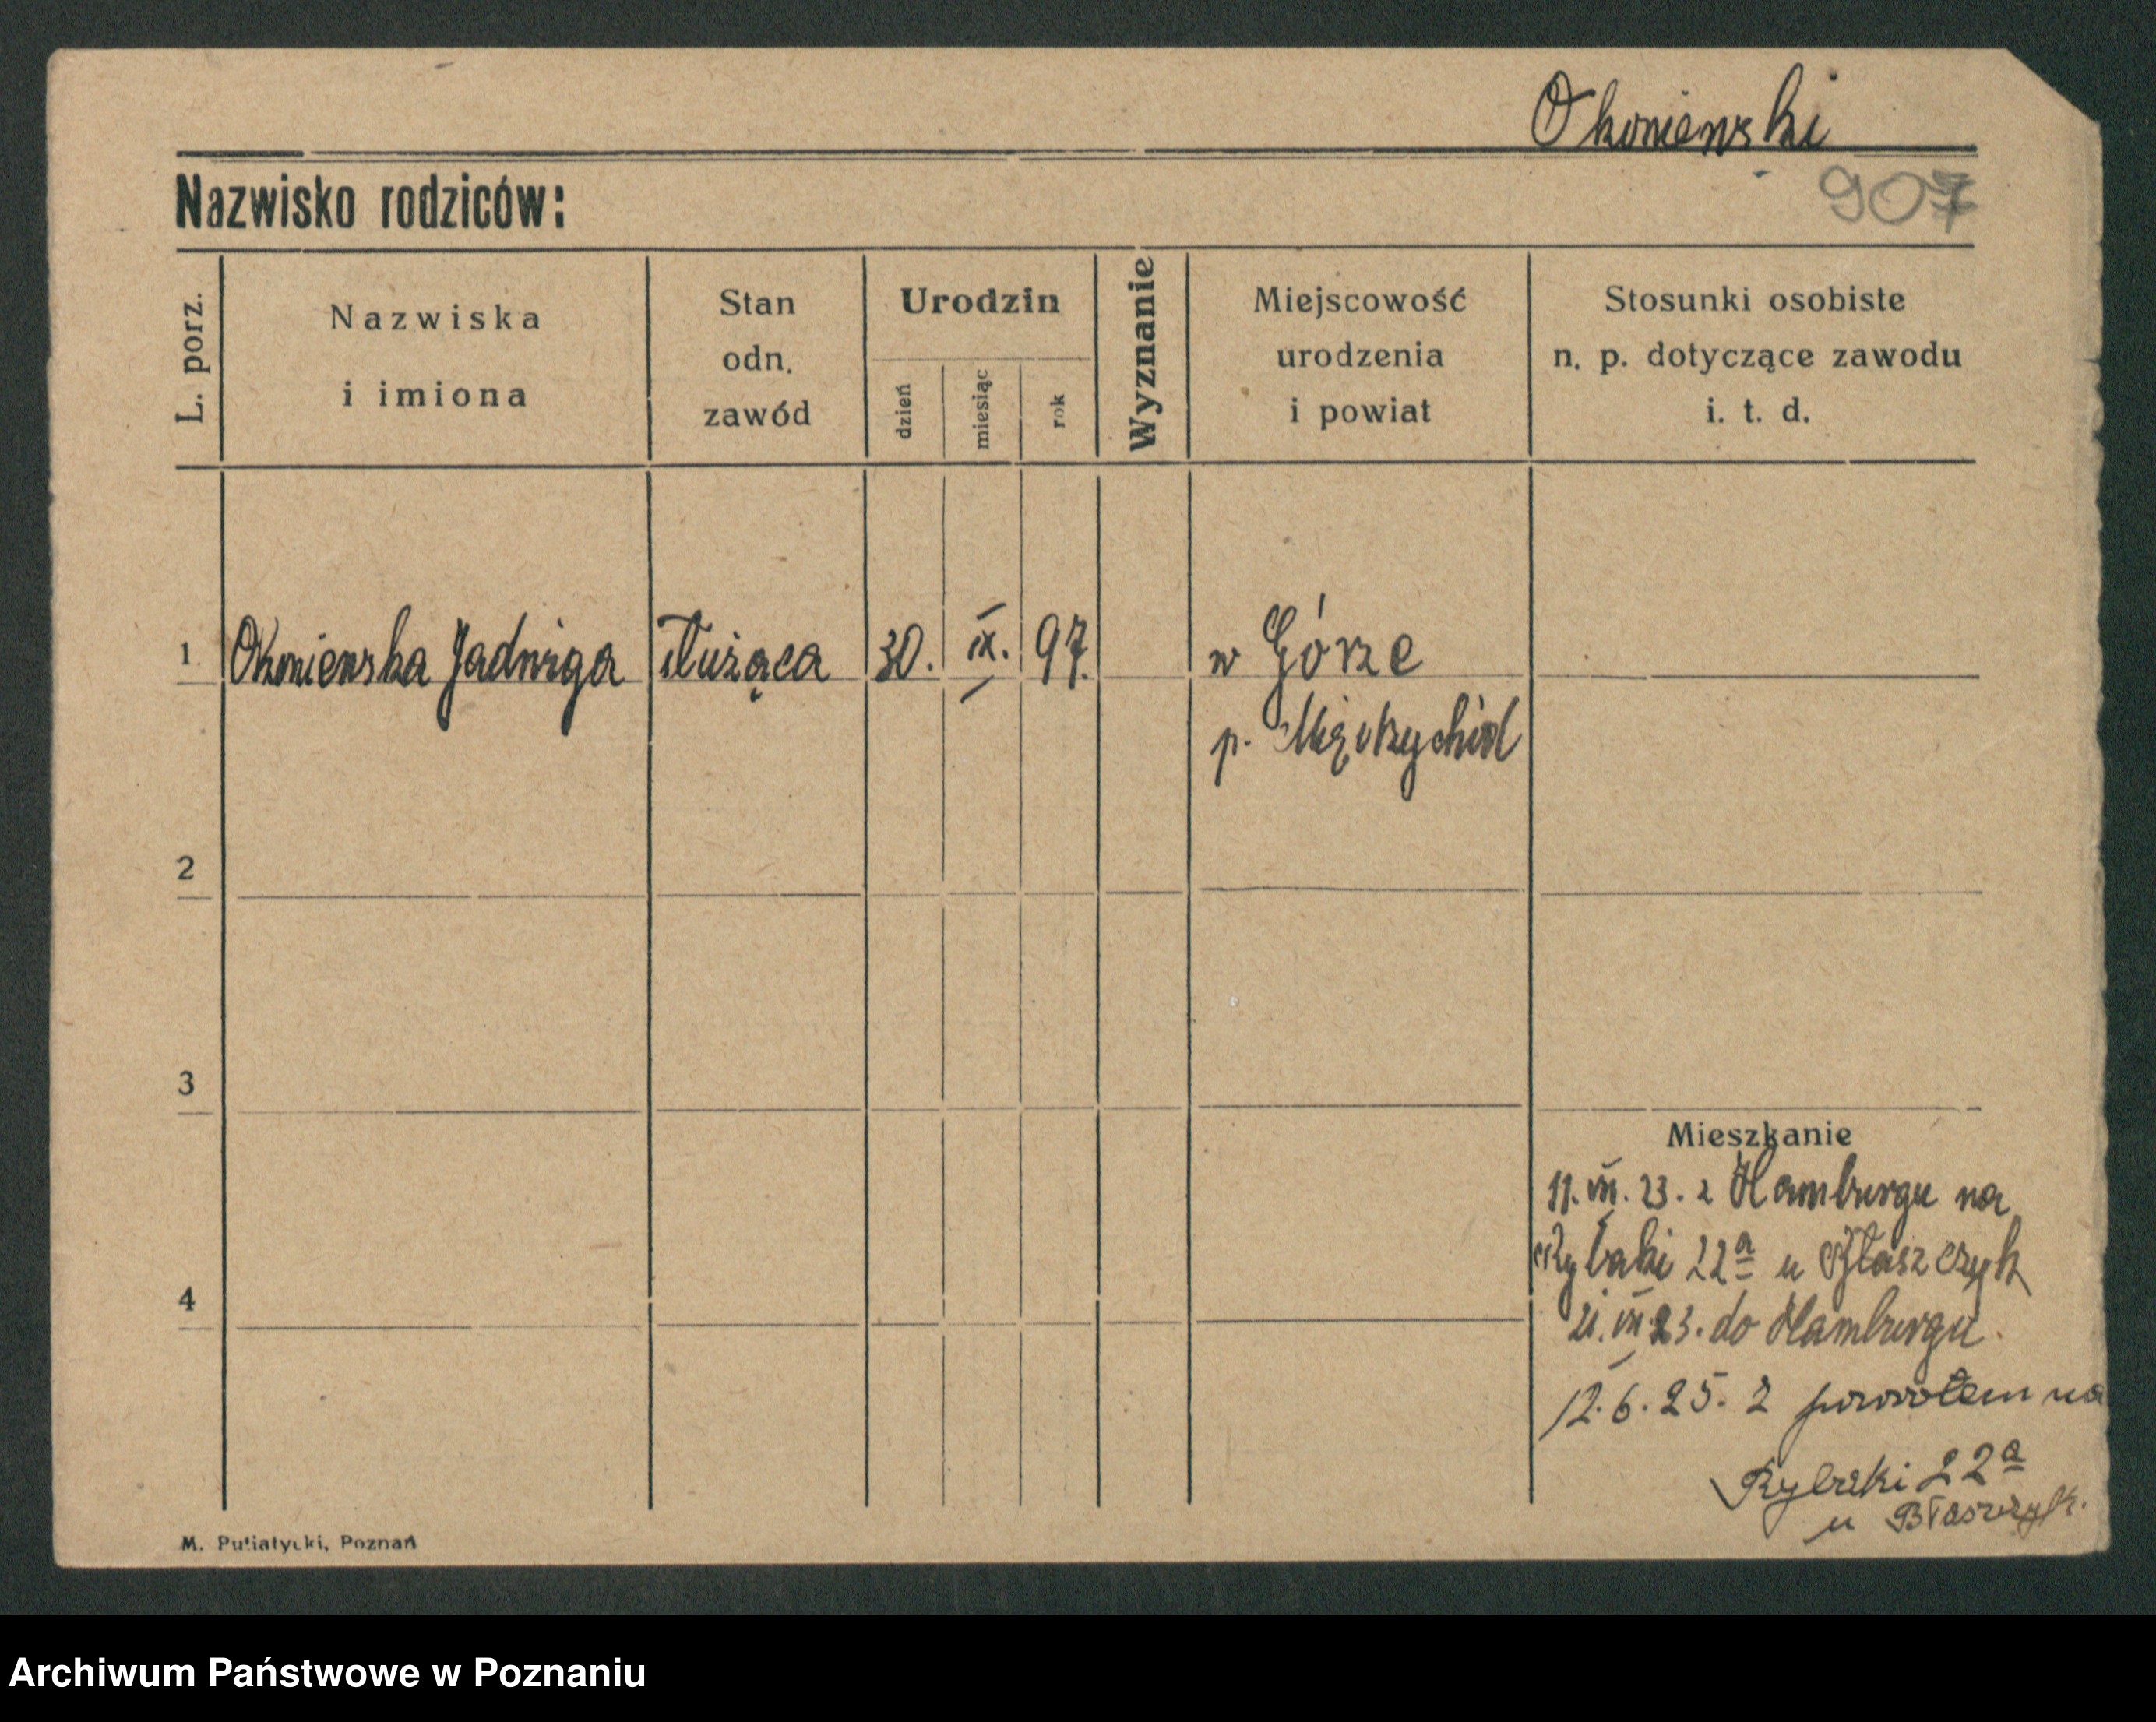 Okoniewski
Nazwisko rodziców:
907
L. porz.
Nazwiska
i imiona
Stan
odn.
zawód
Urodzin
dzień
miesiąc
rok
Wyznanie
Miejscowość
urodzenia
i powiat
Stosunki osobiste
n. p. dotyczące zawodu
i. t. d.
1 Okoniewska Jadwiga służąca 30. IX. 97. w Górze
p. Międzychód
2
3
Mieszkanie
11. VII. 23. z Hamburga na
Rybaki 22a u Błaszczyk
4
VII 23. do Hamburga.
12. 6. 25. z powrotem na
Rybaki 22a
u Błaszczyk.
M. Putiatycki, Poznań
Archiwum Państwowe w Poznaniu